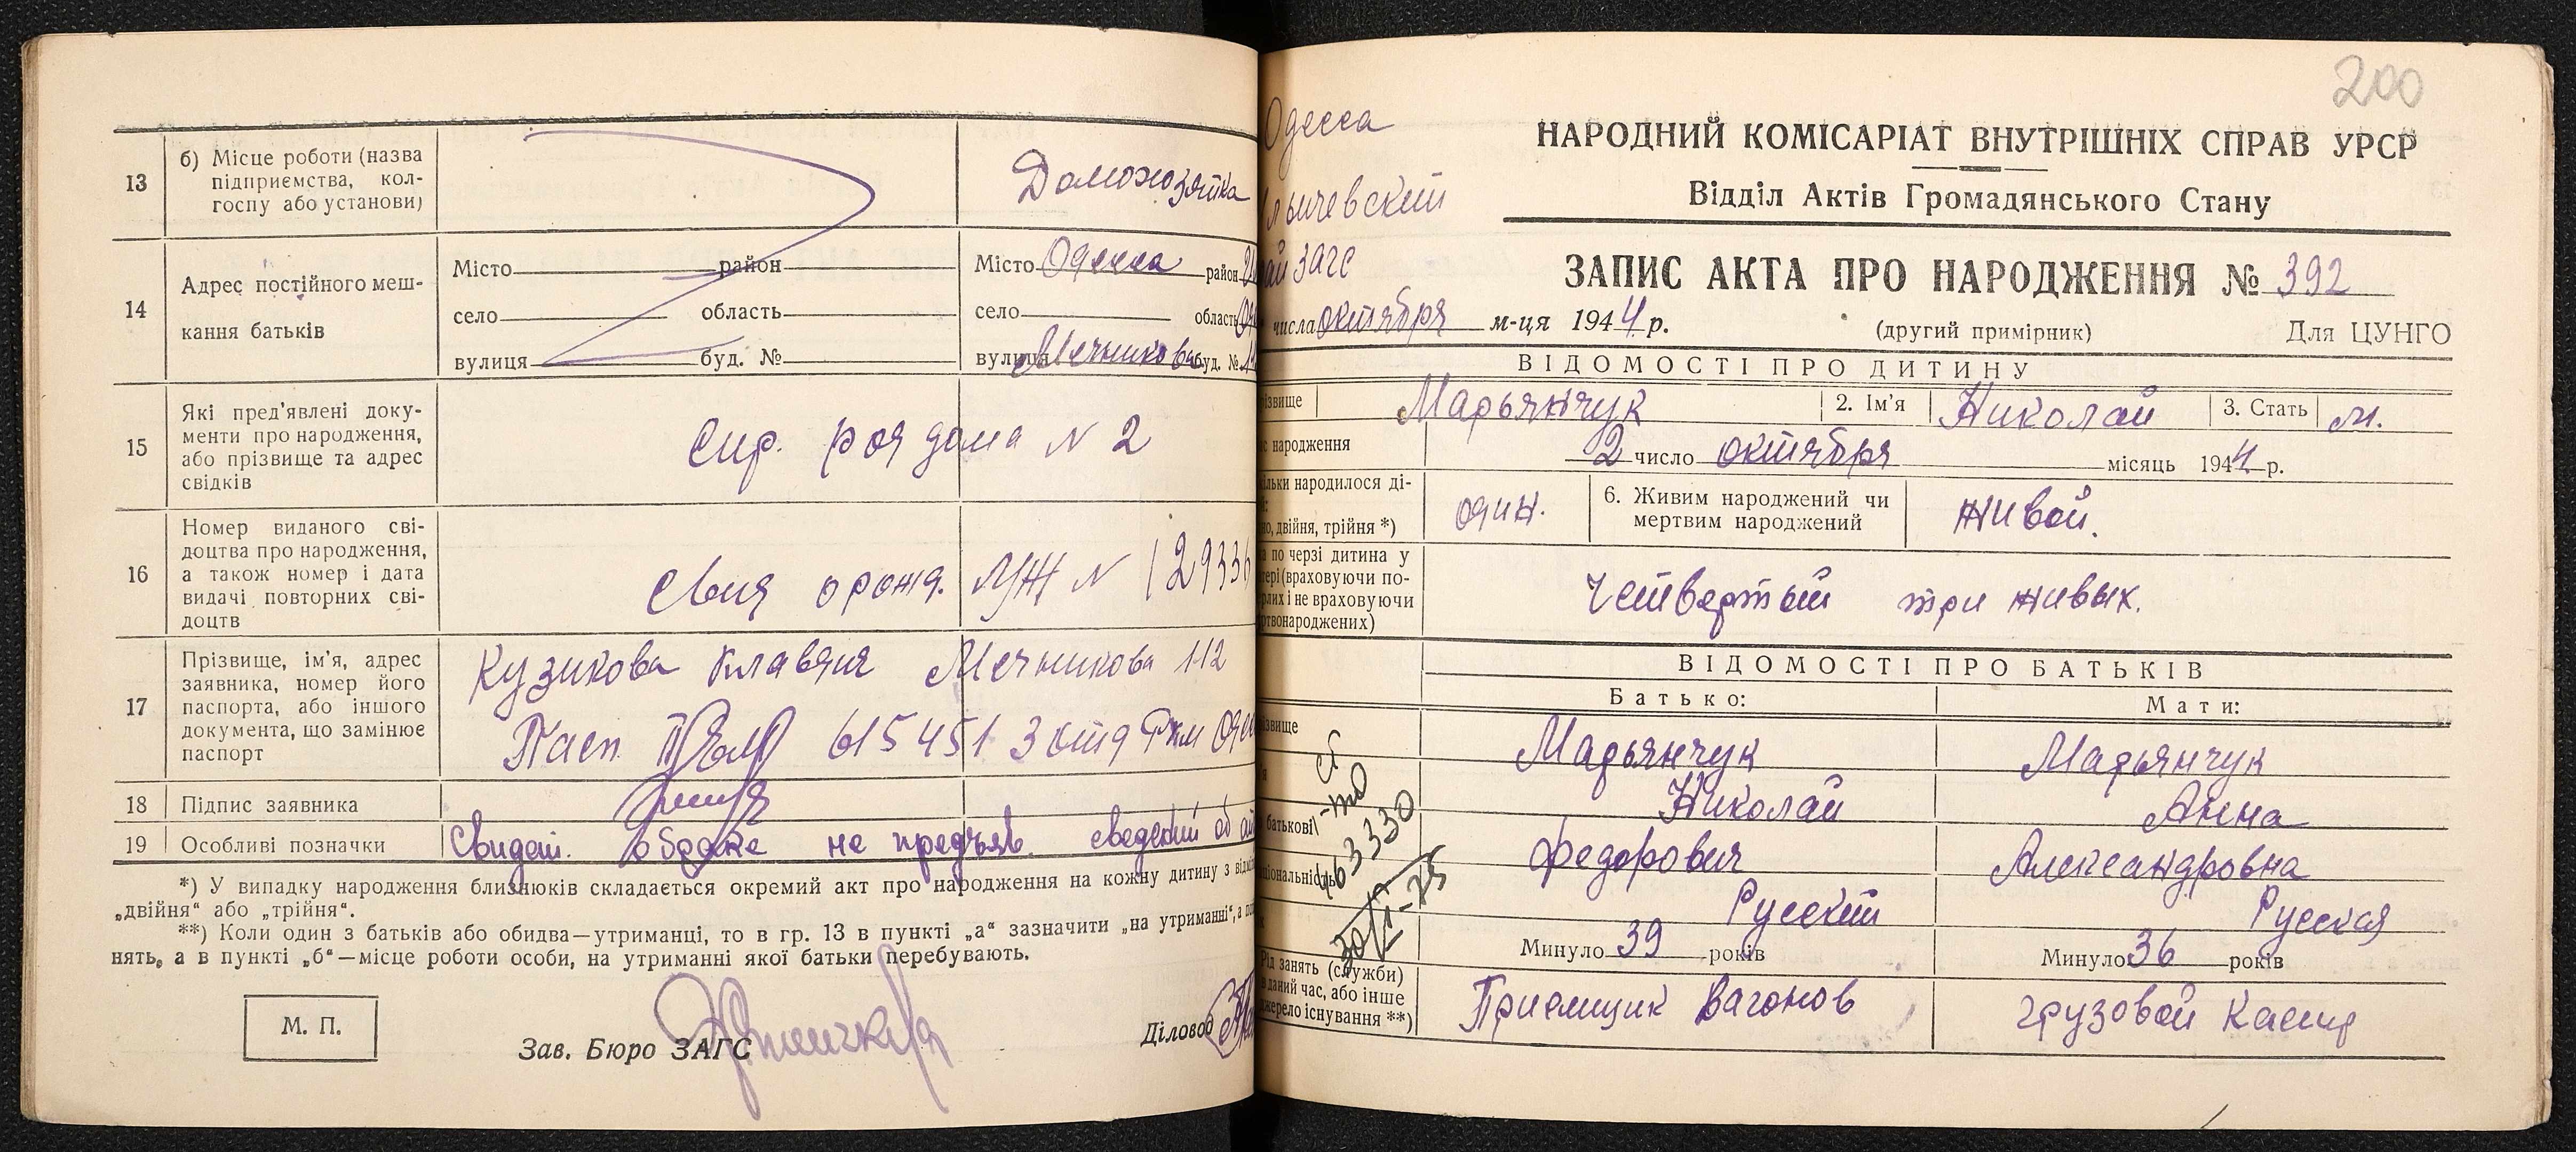 13
б) Місце роботи (назва
підприємства, кол-
госпу або установи)
Домохозяйка
14
Адрес постійного меш-
кання батьків
Місто район
село область
вулиця буд. №
Місто Одесса район
село область
вулиця Мечникова буд. №
15
Які пред'явлені доку-
менти про народження,
або прізвище та адрес
свідків
Спр. род дома N 2
16
Номер виданого сві-
доцтва про народження,
а також номер і дата
видачі повторних сві-
доцтв
о рожд. УЖ N 129336
17
Прізвище, ім'я, адрес
заявника, номер його
паспорта, або іншого
документа, що замінює
паспорт
Кузикова Клавдия Мечникова 112
Пасп. 615451 3 отд Ркм
18
Підпис заявника
19
Особливі позначки
Свидет. о браке не предъяв. сведений об
*) У випадку народження близнюків складається окремий акт про народження на кожну дитину з
„двійня“ або „трійня“.
**) Коли один з батьків або обидва—утриманці, то в гр. 13 в пункті „а“ зазначити „на утриманні“, а
нять, а в пункті „б“—місце роботи особи, на утриманні якої батьки перебувають.
М. П.
Зав. Бюро ЗАГС
Діловод
200
Одесса
льичевский
рай загс
числа октября м-ця 1944 р.
НАРОДНИЙ КОМІСАРІАТ ВНУТРІШНІХ СПРАВ УРСР
Відділ Актів Громадянського Стану
ЗАПИС АКТА ПРО НАРОДЖЕННЯ № 392
(другий примірник) Для ЦУНГО
ВІДОМОСТІ ПРО ДИТИНУ
ізвище Марьянчук 2. Ім'я Николай 3. Стать м.
народження 2 число октября місяць 1944 р.
ільки народилося ді-
но, двійня, трійня *)
один.
6. Живим народжений чи
мертвим народжений
живой.
а по черзі дитина у
тері (враховуючи по-
рлих і не враховуючи
ртвонароджених)
Четвертый три живых.
ВІДОМОСТІ ПРО БАТЬКІВ
Батько: Мати:
ізвище Марьянчук Марьянчук
Николай Анна
батькові Федорович Александровна
ціональність Русский Русская
Минуло 39 років Минуло 36 років
Рід занять (служби)
даний час, або інше
жерело існування **)
Приемщик вагонов грузовой Кассир
163330